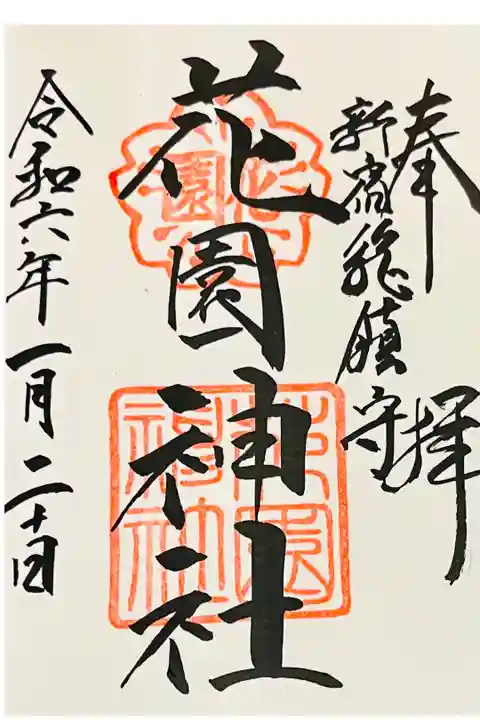 奉拝
新宿総鎮守
花園神社
花園神社
令和六年一月二十日